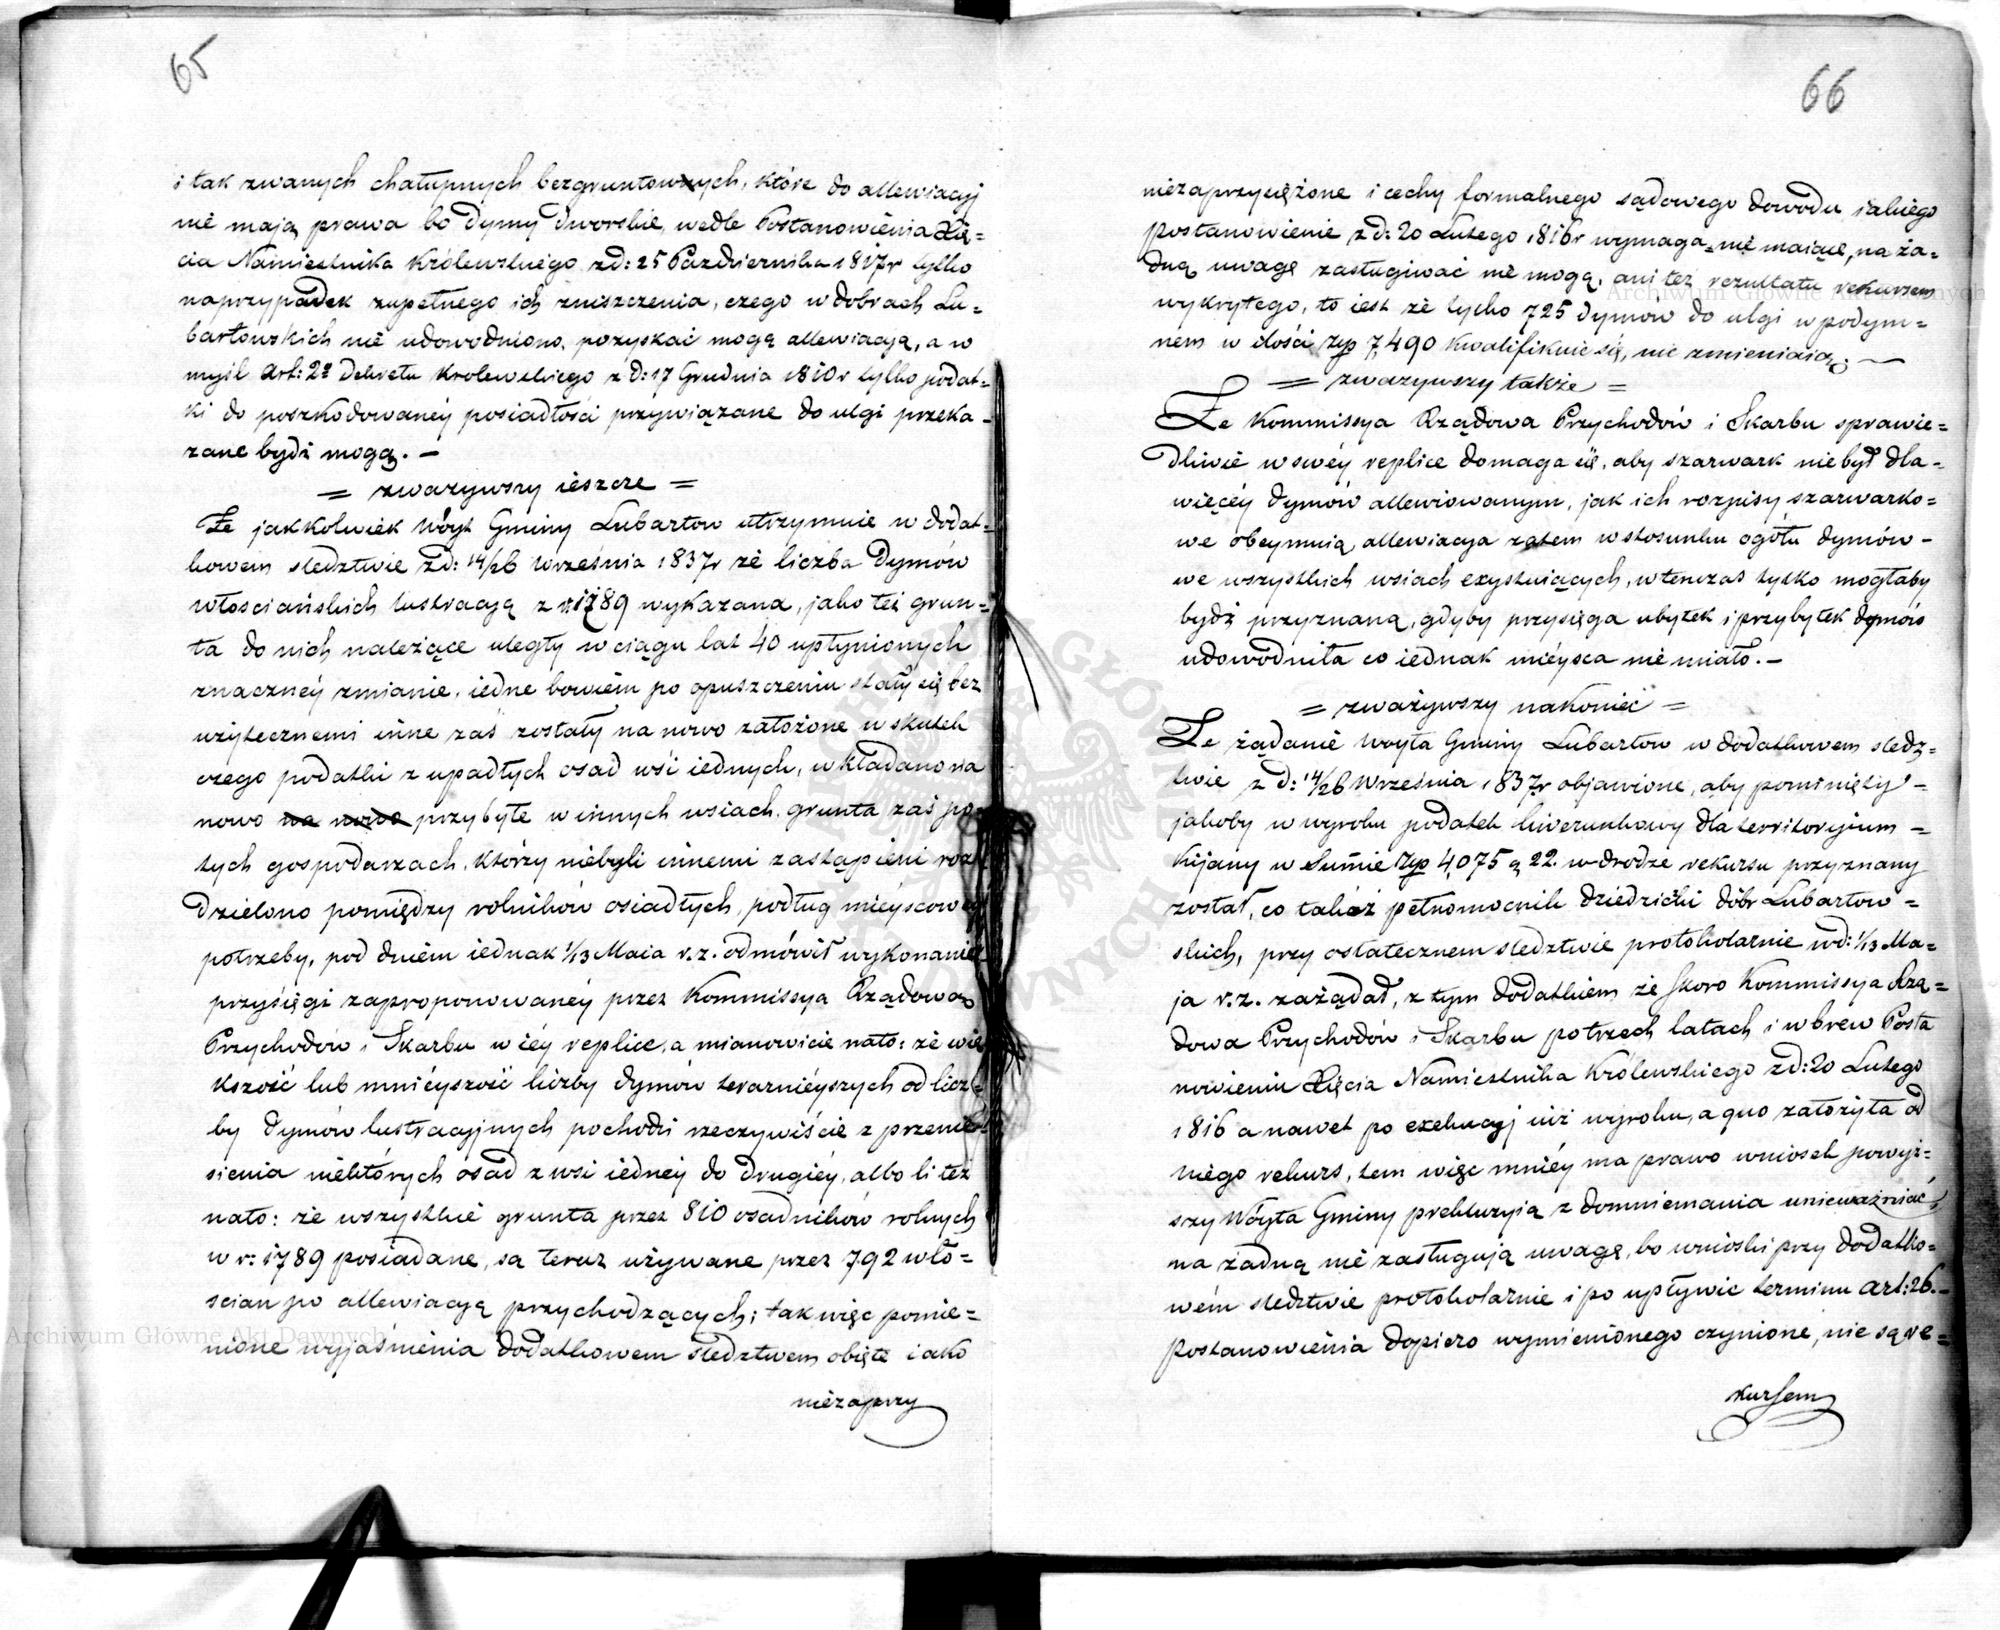 65
i tak zwanych chałupnych bezgruntownych, które do allewiacyj
nie mają prawa bo Dymy Dworskie, wedle Postanowienia Xię=
cia Namiestnika Królewskiego z d: 25 Października 1817r tylko
naprzypadek zupełnego ich zniszczenia, czego w dobrach Lu=
bartowskich nie udowodniono, pozyskać mogą allewiacyą, a w
myśl Art: 2º Dekretu Krolewskiego z d: 17 Grudnia 1810r tylko podat=
ki do poszkodowaney posiadłości przywiązane do ulgi przeka=
zane bydź mogą. —
= zważywszy ieszcze =
Że jakkolwiek Wóyt Gminy Lubartow utrzymuie w dodat=
kowem sledztwie z d: 14/26 Września 1837r że liczba Dymów
włosciańskich lustracyą z r: 1789 wykazana, jako też grun=
ta do nich należące uległy w ciągu lat 40 upłynionych
znaczney zmianie, iedne bowiem po opuszczeniu stały się bez
użytecznemi inne zaś zostały na nowo założone w skutek
czego podatki z upadłych osad wsi iednych, wkładano na
nowo na nowo przybyłe w innych wsiach, grunta zaś po
tych gospodarzach, którzy niebyli innemi zastąpieni roz
dzielono pomiędzy rolników osiadłych, podług mieyscowey
potrzeby, pod dniem iednak 1/13 Maia r. z. odmówił wykonania
przysięgi zaproponowaney przez Kommissya Rządową
Przychodów i Skarbu w iéy replice, a mianowicie nato: że wię
kszość lub mnieyszość liczby dymów teraznieyszych od licz=
by dymów lustracyjnych pochodzi rzeczywiście z przenie=
sienia niektórych osad z wsi iedney do drugiéy, albo li też
nato: że wszystkie grunta przez 810 osadników rolnych
w r: 1789 posiadane, są teraz używane przez 792 wło=
scian po allewiacyą przychodzących; tak więc pomie=
nione wyjaśnienia dodatkowem sledztwem obięte iako
niezaprzy
66
niezaprzysiężone i cechy formalnego sądowego dowodu iakiego
postanowienie z d: 20 Lutego 1816r wymaga=nie maiące, na ża=
dną uwagę zasługiwać nie mogą, ani też rezultatu rekursem
wykrytego, to iest że tylko 725 Dymow do ulgi w podym=
nem w ilości Złp 7,490 kwalifikuie się, nie zmieniaią.
= zwazywszy także =
Że Kommissya Rządowa Przychodów i Skarbu sprawie=
dliwie w swéy replice domaga się, aby szarwark nie był dla=
więcéy dymów allewiowanym, jak ich rozpisy szarwarko=
we obeymuią, allewiacya zatem w stosunku ogółu dymów=
we wszystkich wsiach exystuiących, wtenczas tylko mogłaby
bydź przyznaną, gdyby przysięga ubytek i przybytek dymów
udowodniła co iednak mieysca nie miało. —
= zważywszy nakoniec =
Że żądanie Woyta Gminy Lubartow w dodatkowem sledz=
twie z d: 14/26 Września 1837r objawione, aby pominięty=
jakoby w wyroku podatek liwerunkowy dla territoryium=
Kijany w Summie Złp 4,075 g 22. w drodze rekursu przyznany
został, co takoż pełnomocnik dziedziczki dóbr Lubartow=
skich, przy ostatecznem sledztwie protokolarnie w d: 1/13 Ma=
ja r. z. zażądał, z tym dodatkiem że skoro Kommissya Rzą=
dowa Przychodów i Skarbu po trzech latach i wbrew Posta
nowieniu Xięcia Namiestnika Królewskiego z d: 20 Lutego
1816 a nawet po exekucyj iuż wyroku, a quo założyła od
niego rekurs, tem więc mniéy ma prawo wniosek powyż=
szy Wóyta Gminy prekluzyią z domniemania unieważniać,
na żadną nie zasługują uwagę, bo wnioski przy dodatko=
wém sledztwie protokolarnie i po upływie terminu Art: 26.=
Postanowienia dopiero wymienionego czynione, nie są re=
kursem